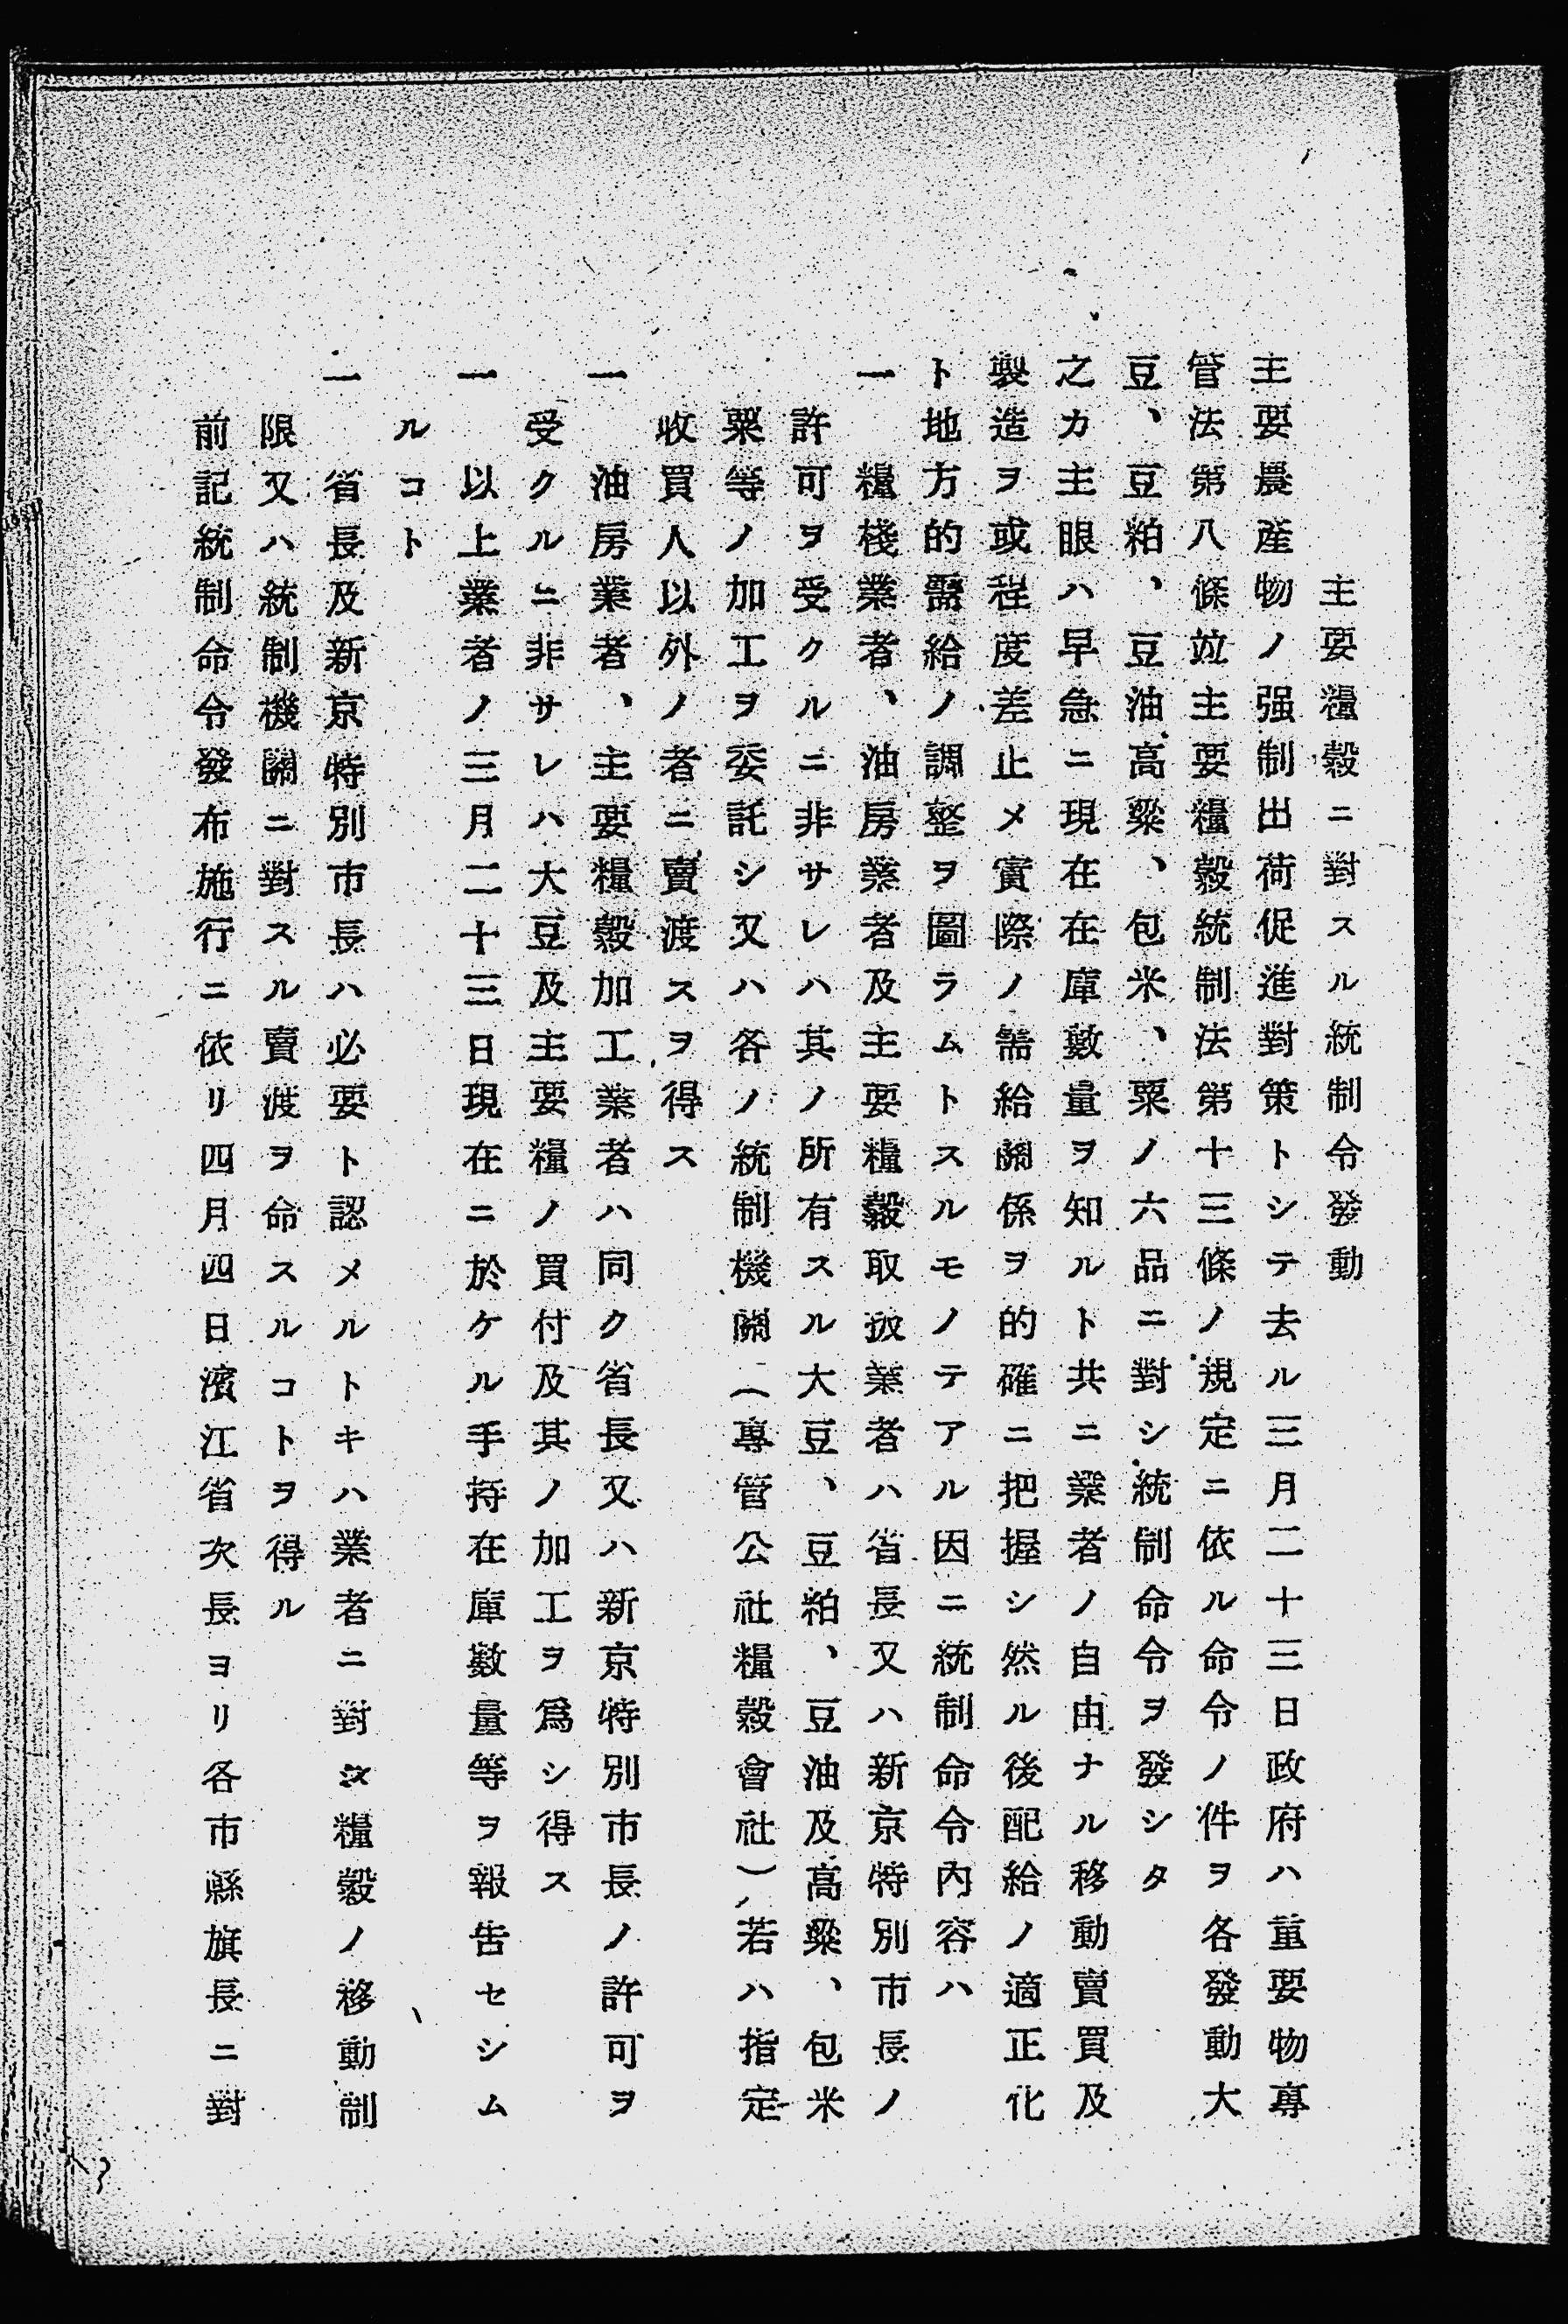 主要糧穀ニ對スル統制令發動
主要農産物ノ强制出荷促進對策トシテ去ル三月二十三日政府ハ重要物專
管法第八條竝主要糧穀統制法第十三條ノ規定ニ依ル命令ノ件ヲ各發動大
豆、豆粕、豆油高粱、包米、粟ノ六品ニ對シ統制命令ヲ發シタ
之カ主眼ハ早急ニ現在在庫數量ヲ知ルト共ニ業者ノ自由ナル移動賣買及
製造ヲ或程度差止メ實際ノ需給關係ヲ的確ニ把握シ然ル後配給ノ適正化
ト地方的需給ノ調整ヲ圖ラムトスルモノテアル因ニ統制命令內容ハ
一　糧棧業者、油房業者及主要糧穀取扱業者ハ省長又ハ新京特別市長ノ
許可ヲ受クルニ非サレハ其ノ所有スル大豆、豆粕、豆油及高粱、包米
粟等ノ加工ヲ委託シ又ハ各ノ統制機關（專管公社糧穀會社）若ハ指定
收買人以外ノ者ニ賣渡スヲ得ス
一　油房業者、主要糧穀加工業者ハ同ク省長又ハ新京特別市長ノ許可ヲ
受クルニ非サレハ大豆及主要糧ノ買付及其ノ加工ヲ爲シ得ス
一　以上業者ノ三月二十三日現在ニ於ケル手持在庫數量等ヲ報告セシム
ルコト
一　省長及新京特別市長ハ必要ト認メルトキハ業者ニ對シ糧穀ノ移動制
限又ハ統制機關ニ對スル賣渡ヲ命スルコトヲ得ル
前記統制命令發布施行ニ依リ四月四日濱江省次長ヨリ各市縣旗長ニ對